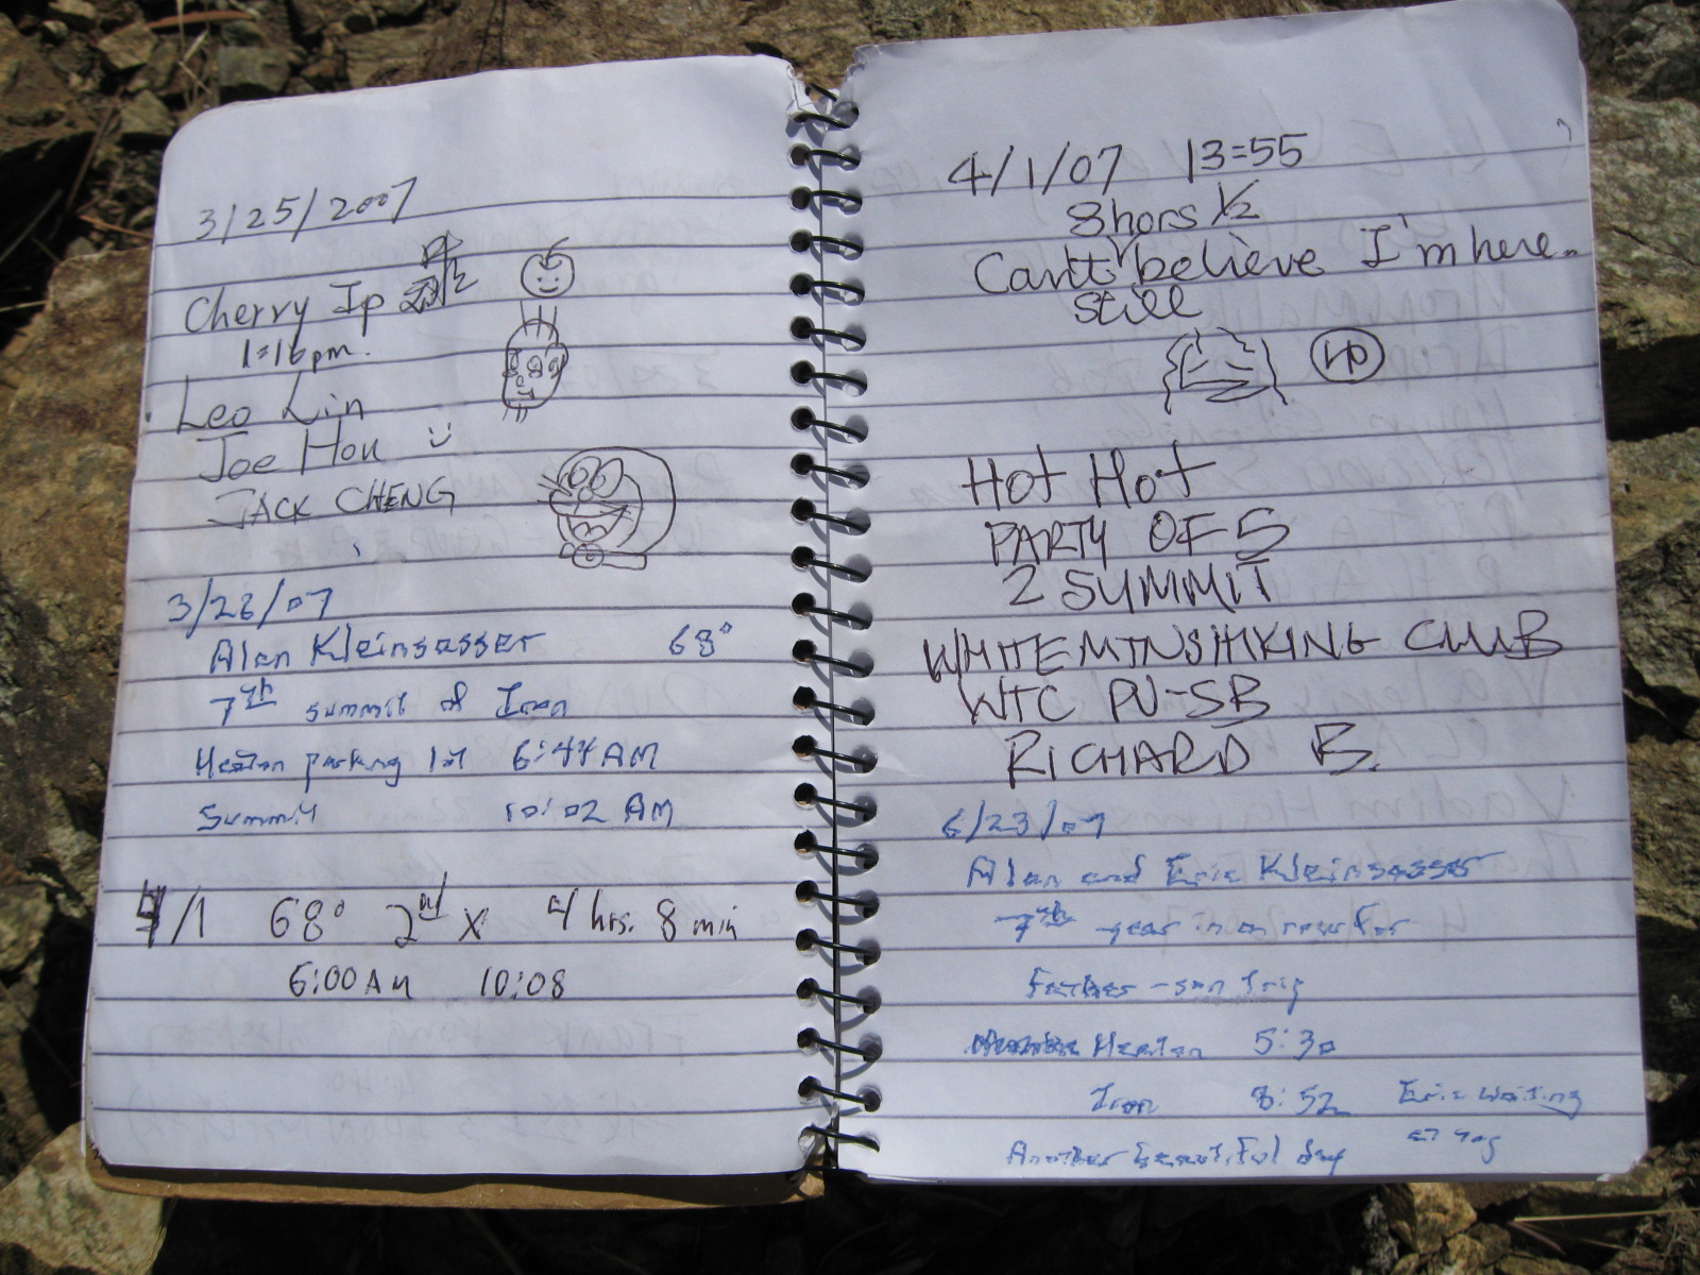 3/25/2007
Cherry Ip
1:16pm.
Leo Lin
Joe Hou
JACK CHENG
3/28/07
Alan Kleinsasser 68°
7th summit of Iron
Heaton parking lot 6:44 AM
Summit 10:02 AM
4/1 68° 2nd x 4 hrs. 8 min
6:00 AM 10:08
4/1/07 13:55
8 hors 1/2
Can't believe I'm here.
still
Hot Hot
PARTY OF 5
2 SUMMIT
WHITE MTNS HIKING CLUB
WTC PV-SB
RICHARD B.
6/23/07
Alan and Eric Kleinsasser
7th year in a row for
Father-son trip
Heaton 5:30
Iron 8:52 Eric waiting
Another beautiful day at